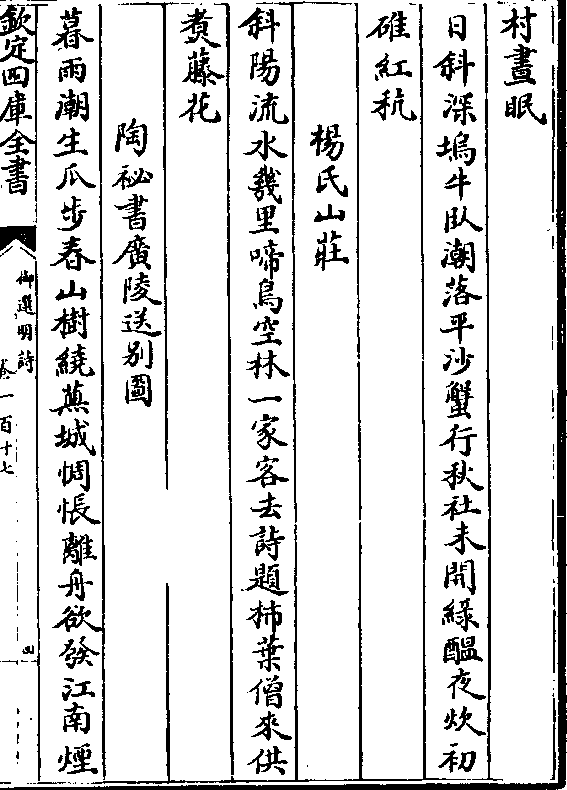 村晝眠
日斜深塢牛臥潮落平沙蟹行秋社未開綠醖夜炊初
碓紅秔
楊氏山莊
斜陽流水幾里啼鳥空林一家客去詩題柿葉僧來供
煑藤花
陶祕書廣陵送别圖
暮雨潮生瓜步春山樹繞蕪城惆悵離舟欲發江南煙
欽定四庫全書
御選明詩
卷一百十七
四